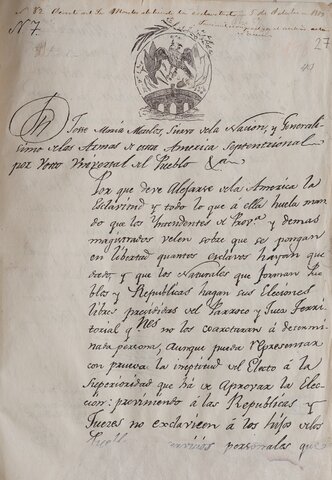 Nº 82 Decreto del S. Morelos aboliendo la esclavitud 5 de Octubre
Nº 7.
27
Dn. José María Morelos, Siervo de la Nacion, y Generali-
simo de las Armas de esta America Septentrional
por Voto Universal del Pueblo &a.
Por que deve alefarse de la America la
Esclavitud y todo lo que á ella huela man
do que los Yntendentes de Prova. y demas
magistrados velen sobre que se pongan
en libertad quantos esclavos hayan que
dado, y que los Naturales que forman Pue
blos y Republicas hagan sus Elecciones
libres precididas del Parroco y Juez Terri-
torial y Nes no los coartaran á determi-
nada persona, aunque pueda Representar
con prueva la ineptitud del Electo á la
Superioridad que há de Aprovar la Elec-
cion: previniendo á las Republicas y
Jueces no esclavicen á los hijos de los
Pueblos servicios personales que